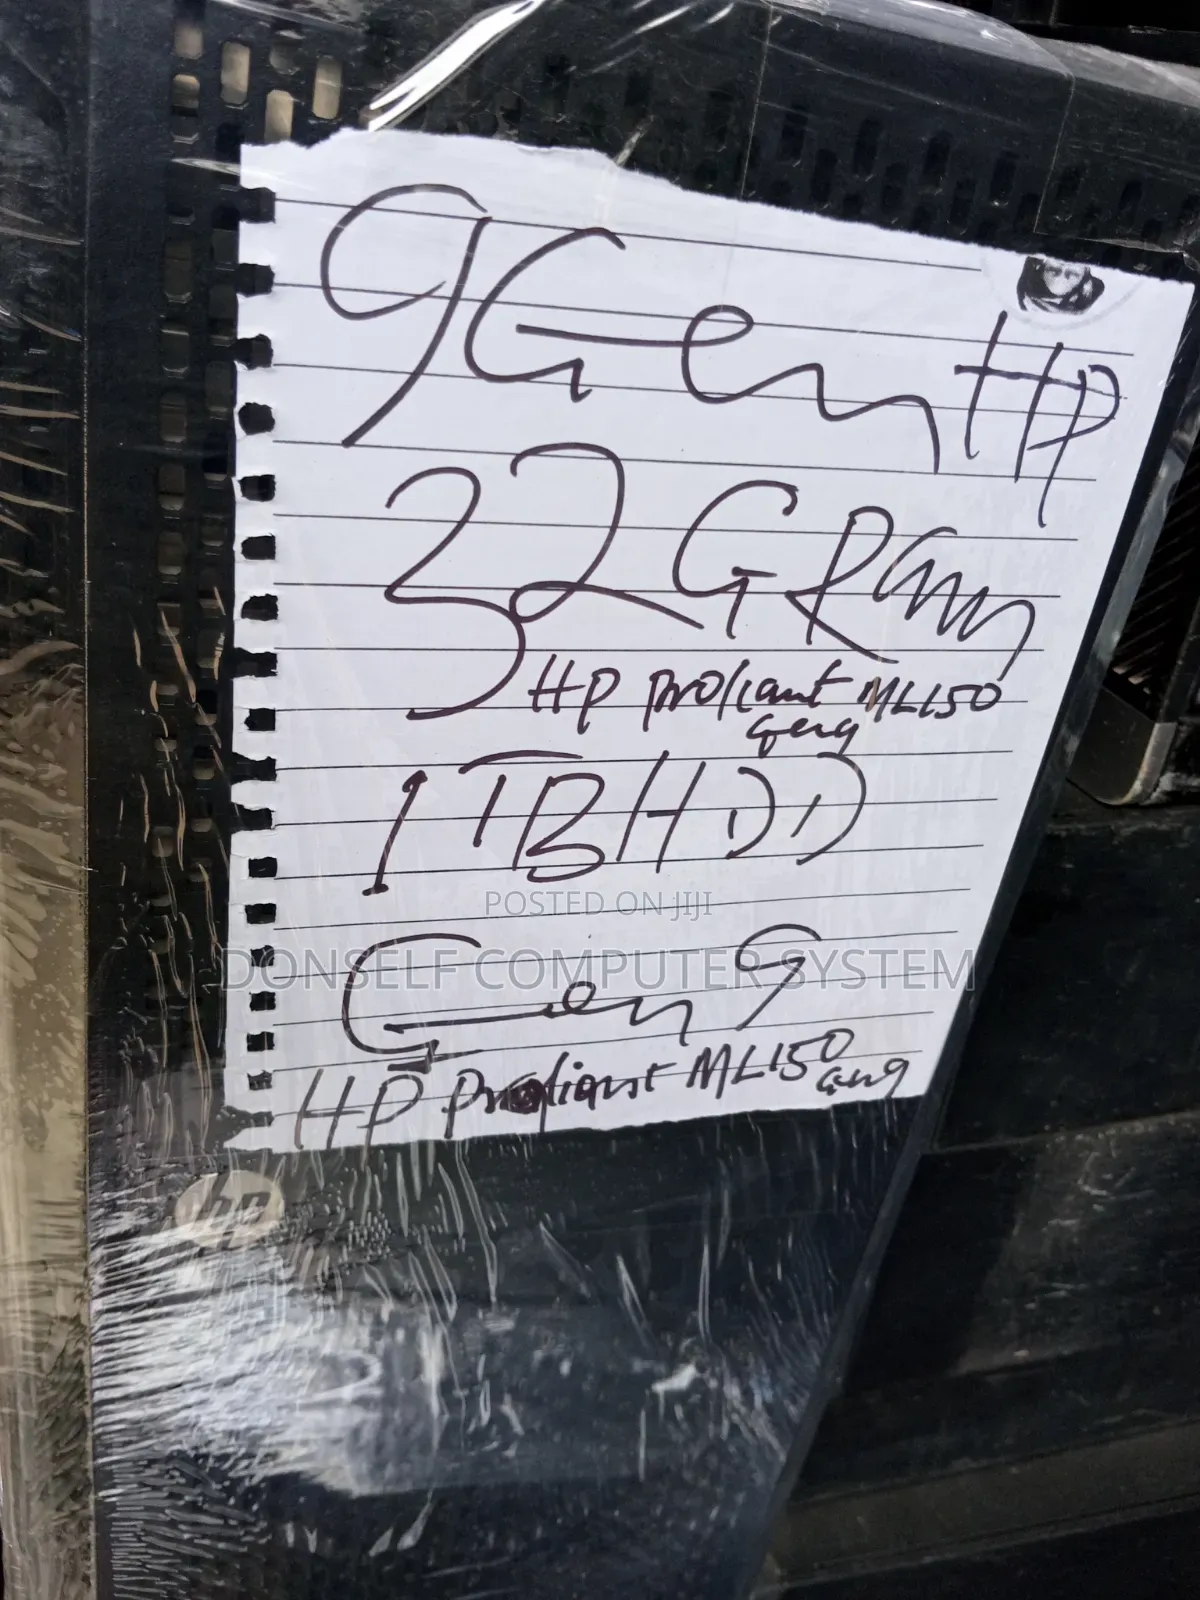 9Gen HP
32G Ram
HP proliant ML150
gen9
1TB HDD
POSTED ON JIJI
DONSELF COMPUTER SYSTEM
Gen 9
HP Proliant ML150
Gen9
hp